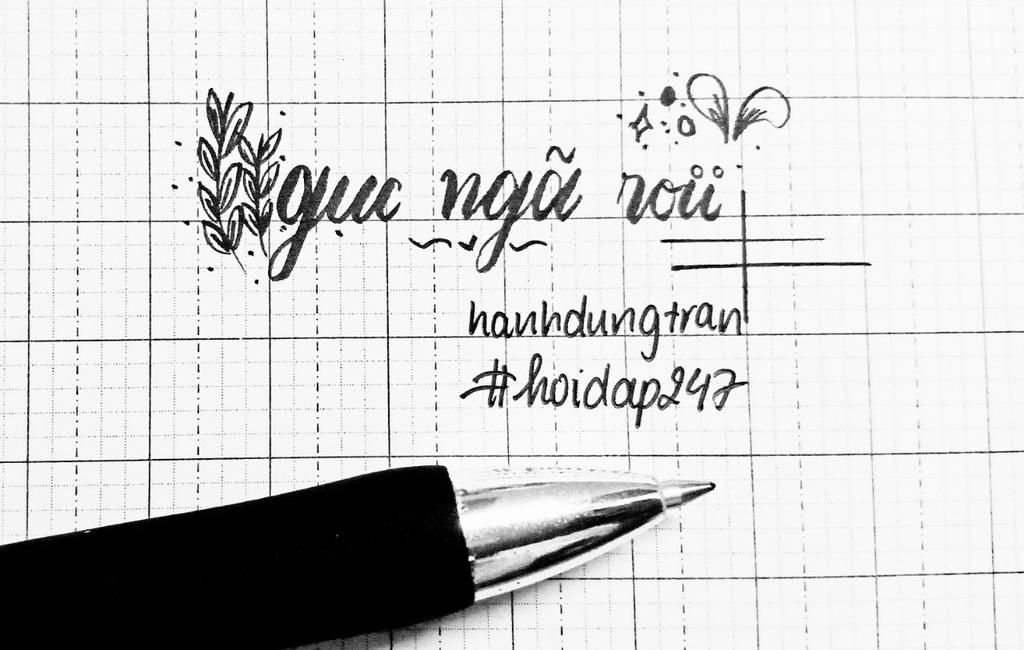 guc ngã roii
hanhdungtran
#hoidap247